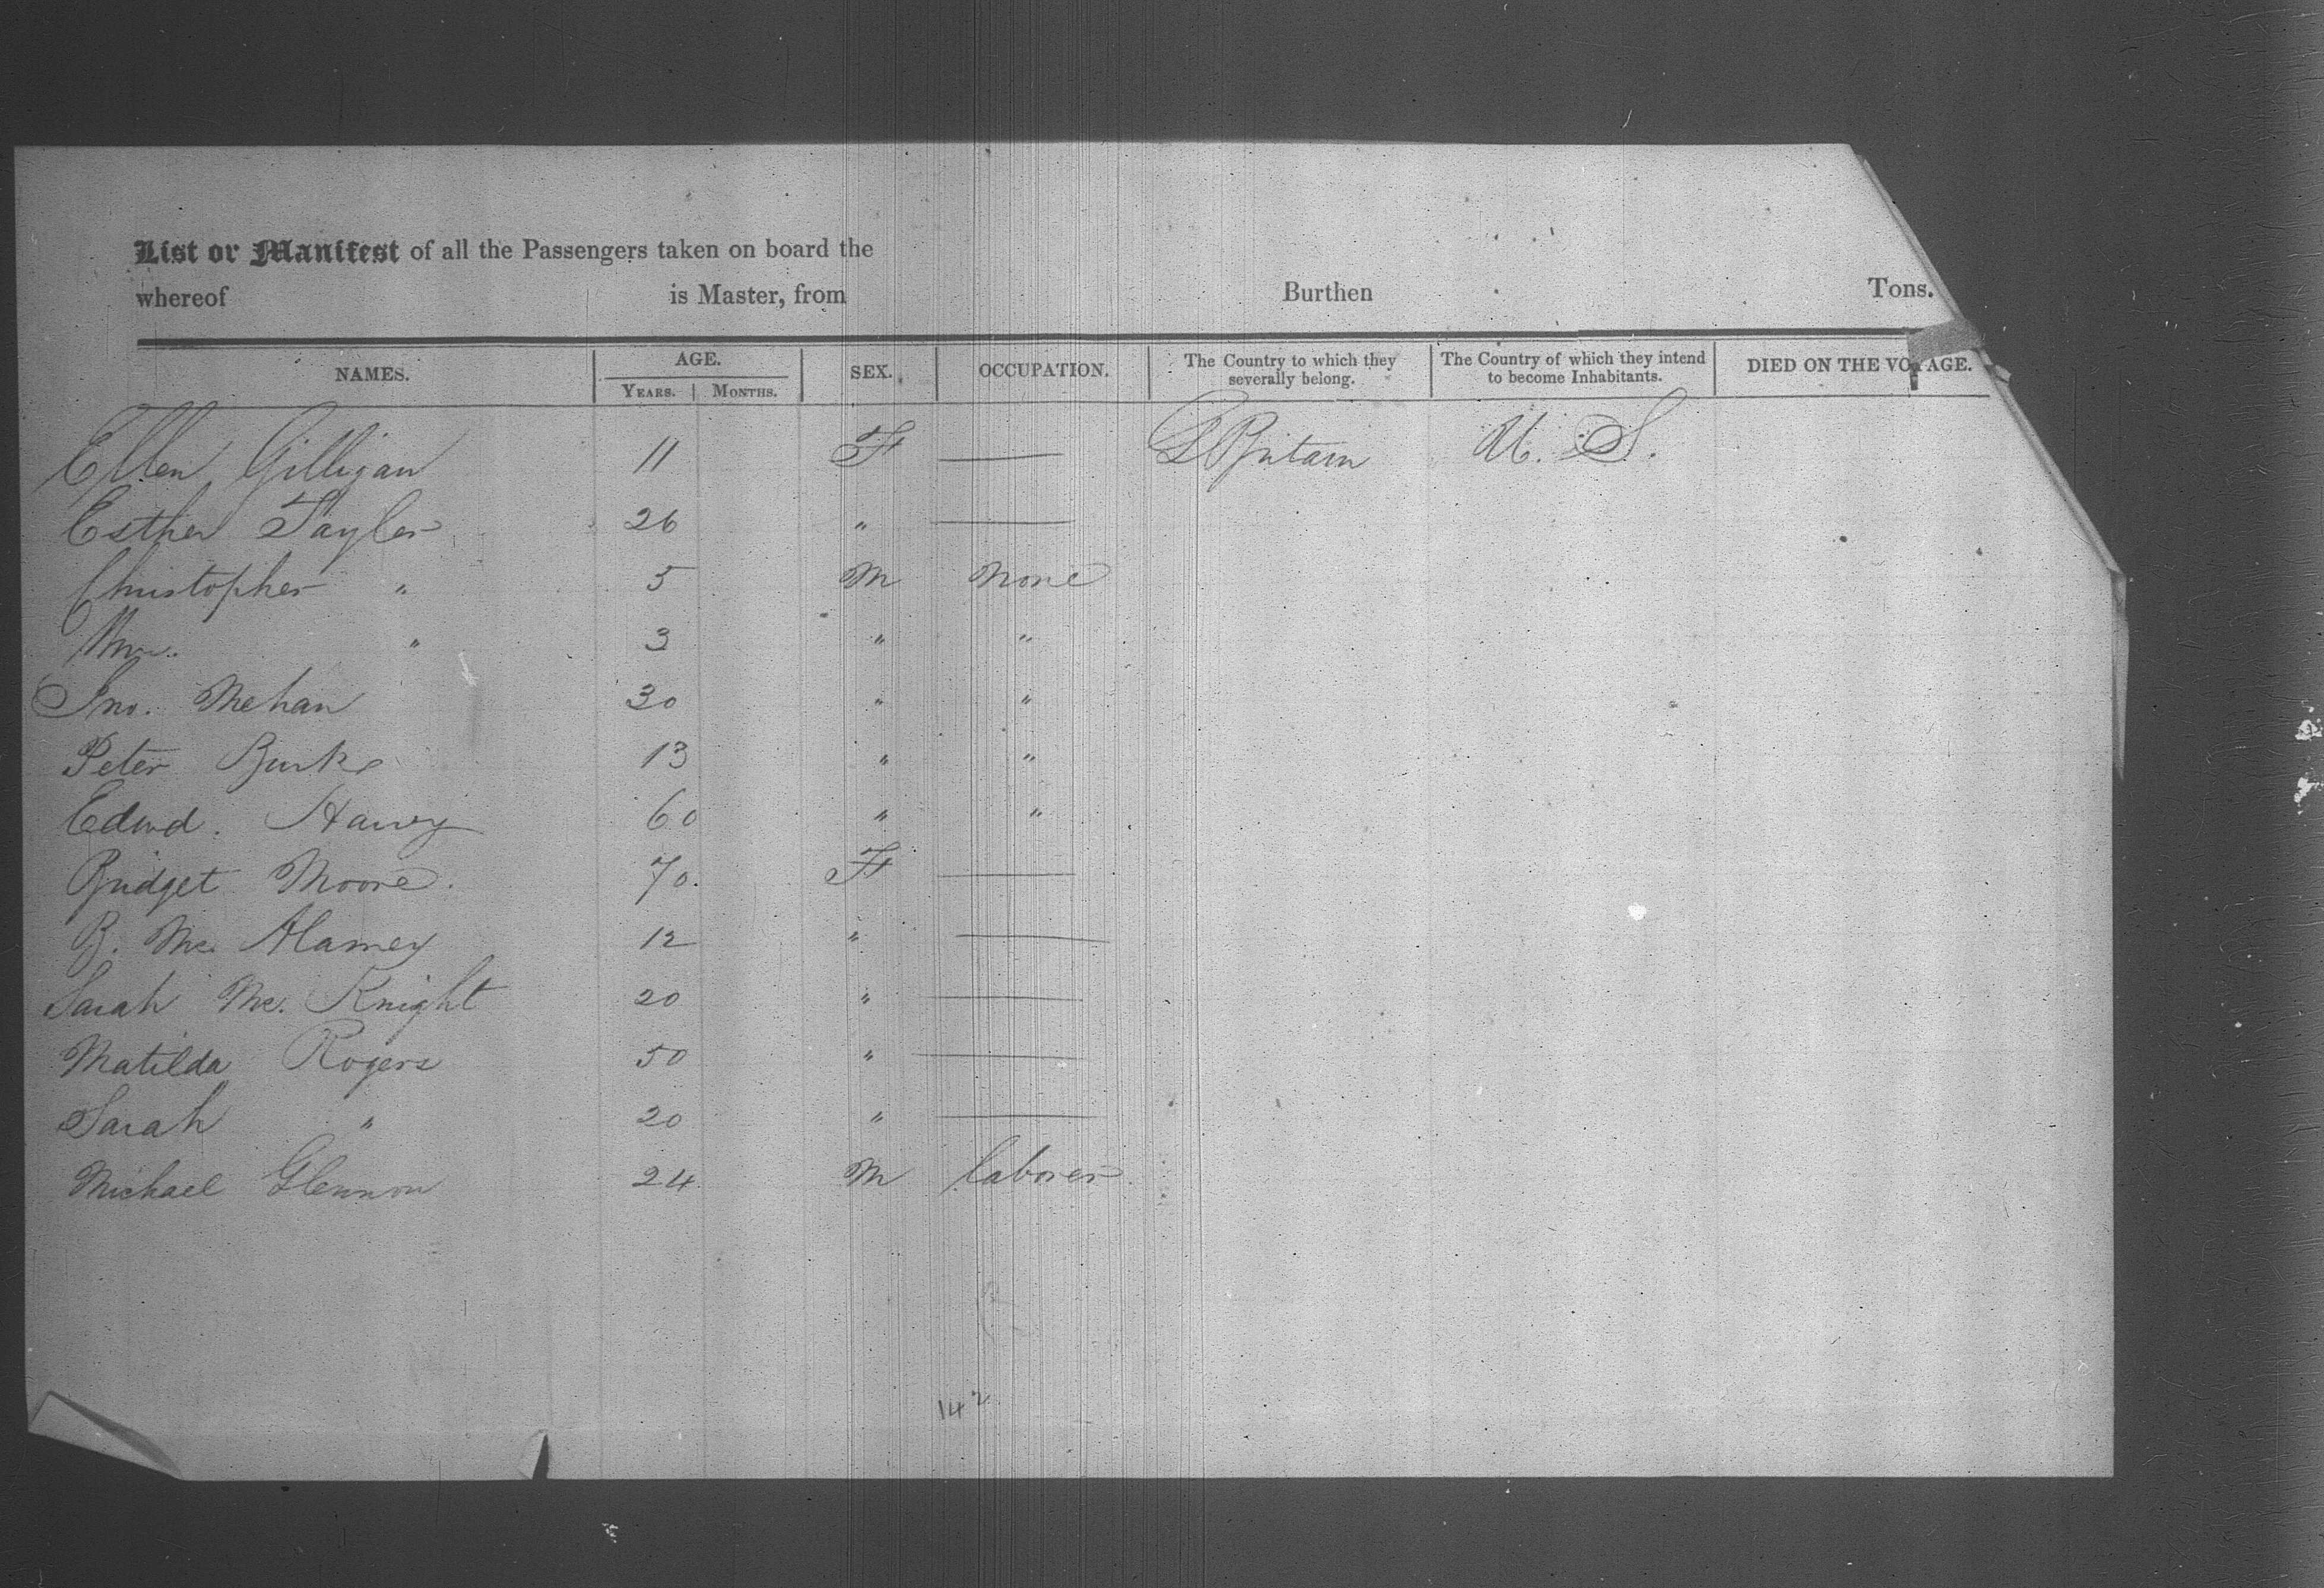 List or Manifest of all the Passengers taken on board the
whereof is Master, from Burthen Tons.
NAMES. AGE. SEX. OCCUPATION. The Country to which they severally belong. The Country of which they intend to become Inhabitants. DIED ON THE VOYAGE.
YEARS. MONTHS.
Ellen Gilligan 11 F — Gt Britain U. S.
Esther Tayler 26 " —
Christopher " 5 M none
Wm. " 3 " "
Jno. Mehan 30 " "
Peter Burke 13 " "
Edwd. Harvey 60 " "
Bridget Moore. 70. F —
B. Mc. 12 " —
Sarah Mc. Knight 20 " —
Matilda Rogers 50 " —
Sarah " 20 " —
Michael Glennon 24 M laborer
142